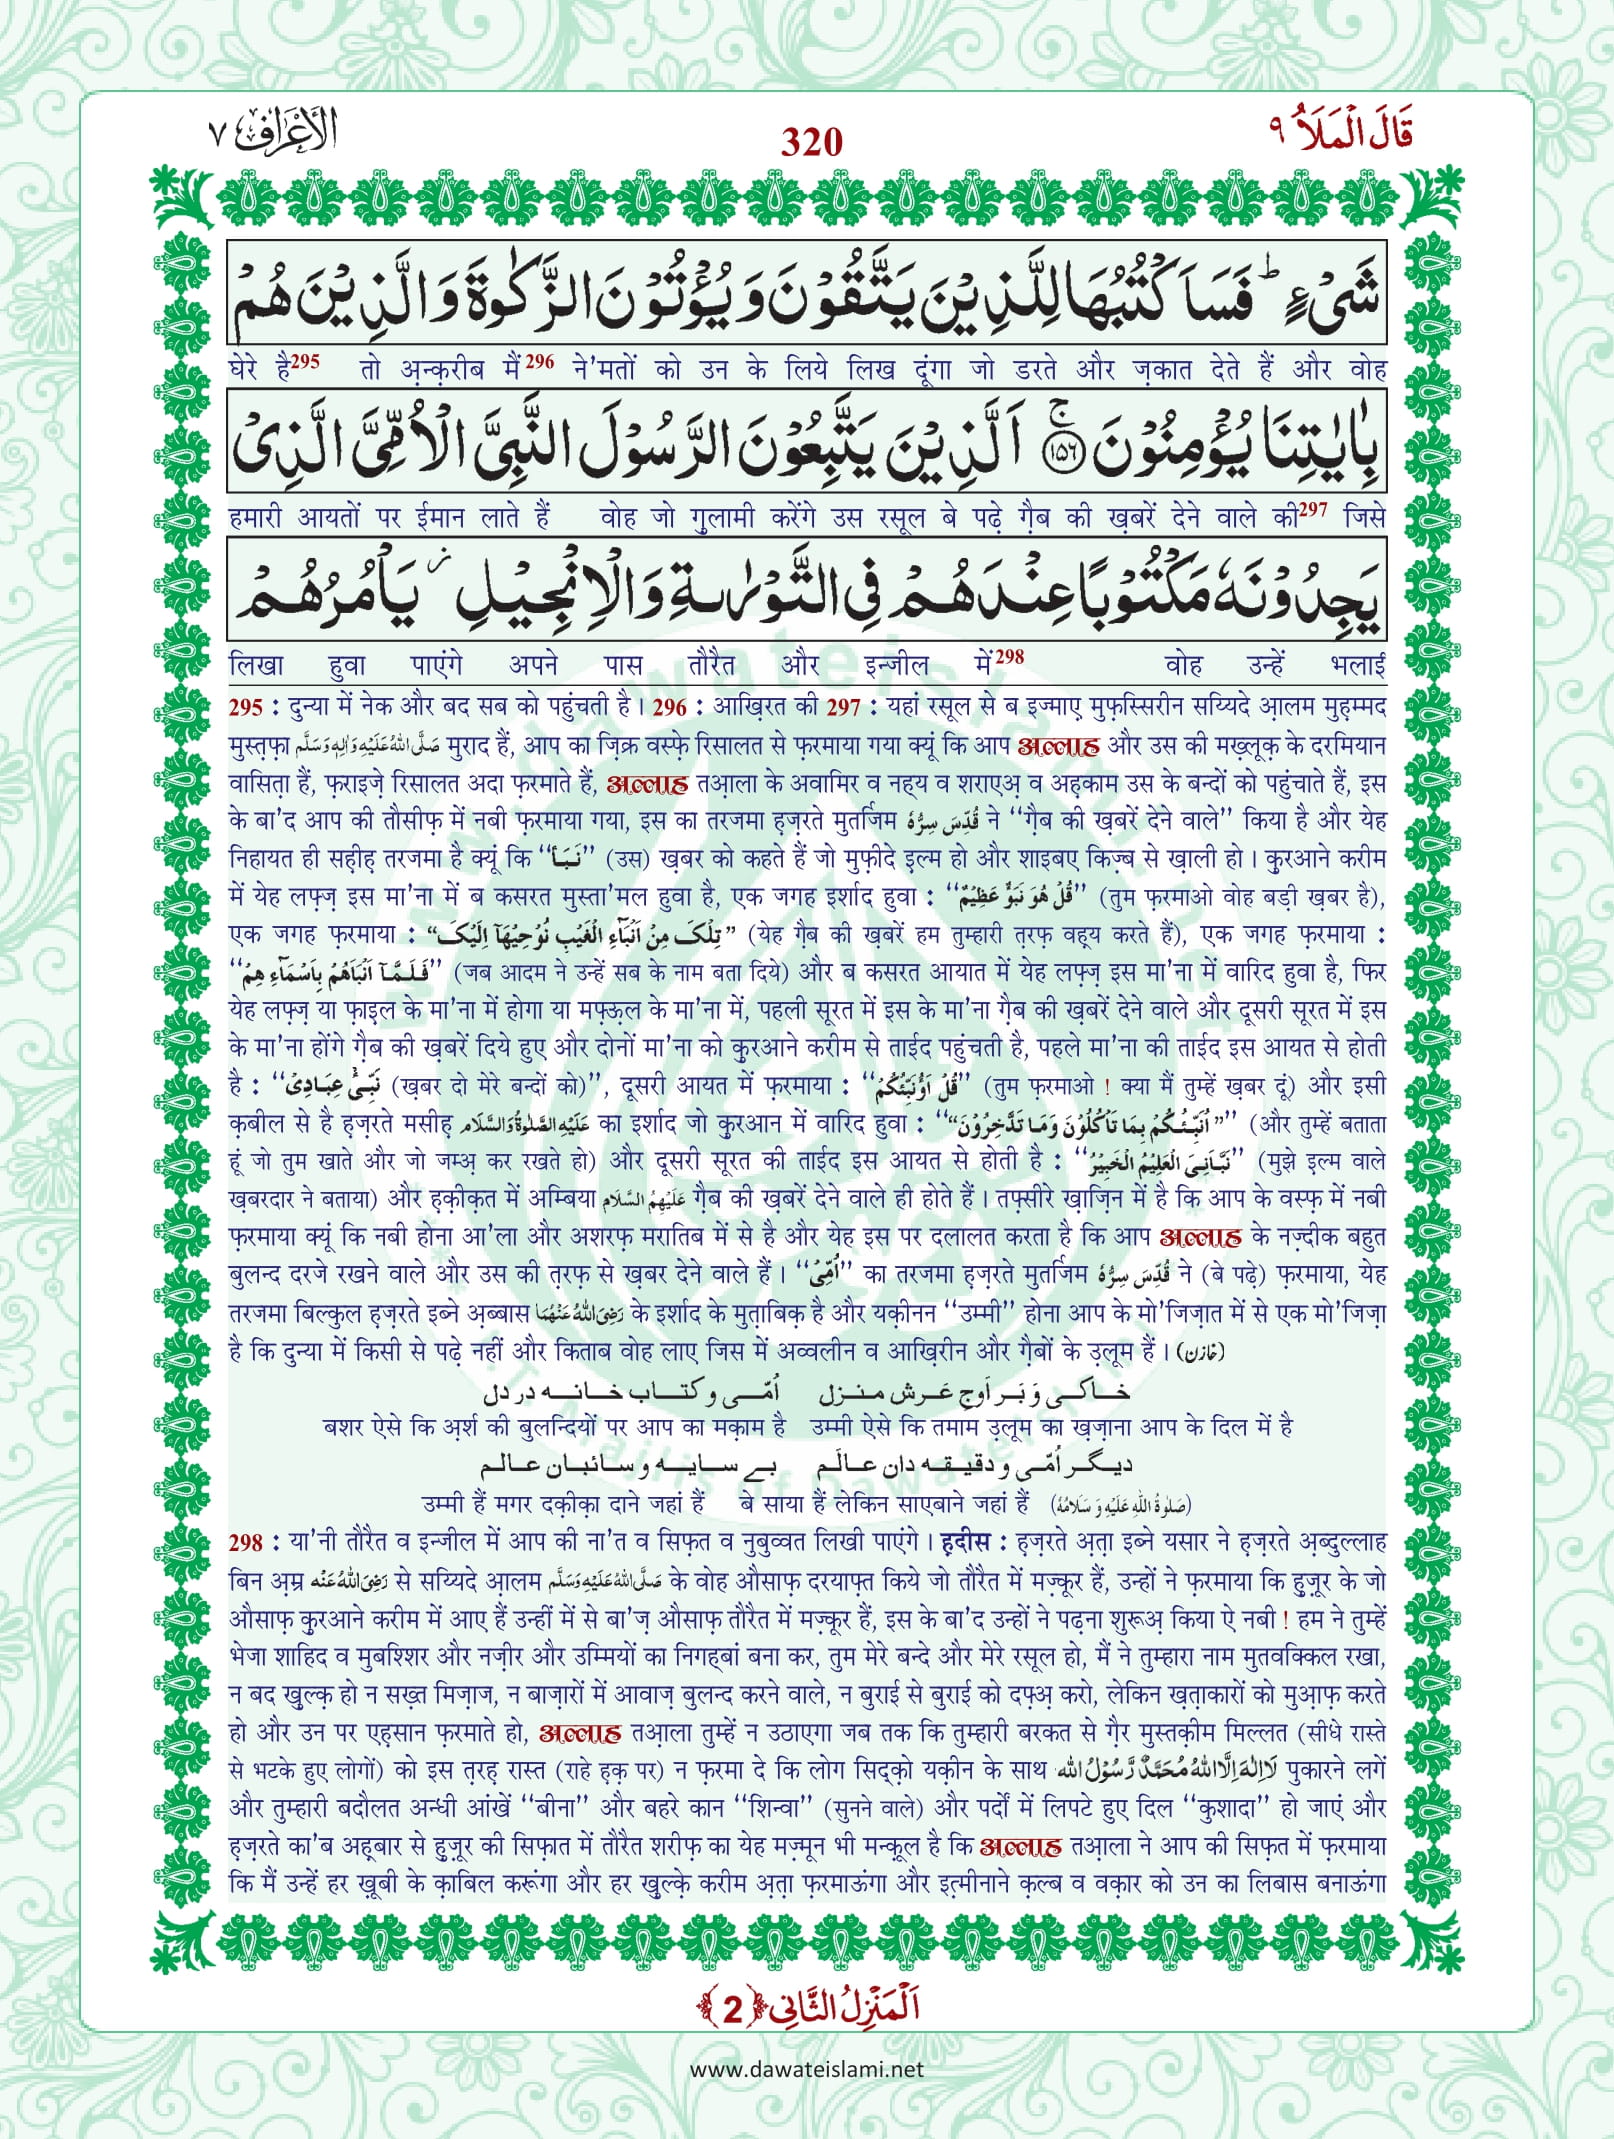 الأعراف ٧
320
قَالَ الْمَلَاُ ٩
شَیْءٍ ؕ فَسَاَكْتُبُهَا لِلَّذِیْنَ یَتَّقُوْنَ وَ یُؤْتُوْنَ الزَّكٰوةَ وَ الَّذِیْنَ هُمْ
घेरे है295 तो अ़न्क़रीब मैं296 ने'मतों को उन के लिये लिख दूंगा जो डरते और ज़कात देते हैं और वोह
بِاٰیٰتِنَا یُؤْمِنُوْنَ ۚ﴿۱۵۶﴾ اَلَّذِیْنَ یَتَّبِعُوْنَ الرَّسُوْلَ النَّبِیَّ الْاُمِّیَّ الَّذِیْ
हमारी आयतों पर ईमान लाते हैं वोह जो ग़ुलामी करेंगे उस रसूल बे पढ़े ग़ैब की ख़बरें देने वाले की297 जिसे
یَجِدُوْنَهٗ مَكْتُوْبًا عِنْدَهُمْ فِی التَّوْرٰىةِ وَ الْاِنْجِیْلِ ؗ یَاْمُرُهُمْ
लिखा हुवा पाएंगे अपने पास तौरैत और इन्जील में298 वोह उन्हें भलाई
295 : दुन्या में नेक और बद सब को पहुंचती है। 296 : आख़िरत की 297 : यहां रसूल से ब इज्माए मुफ़स्सिरीन सय्यिदे आ़लम मुह़म्मद
मुस्त़फ़ा صَلَّی اللہُ عَلَیْہِ وَاٰلِہٖ وَسَلَّم मुराद हैं, आप का ज़िक्र वस्फ़े रिसालत से फ़रमाया गया क्यूं कि आप अल्लाह और उस की मख़्लूक़ के दरमियान
वासित़ा हैं, फ़राइज़े रिसालत अदा फ़रमाते हैं, अल्लाह तआ़ला के अवामिर व नह्य व शराएअ़ व अह़काम उस के बन्दों को पहुंचाते हैं, इस
के बा'द आप की तौसीफ़ में नबी फ़रमाया गया, इस का तरजमा ह़ज़रते मुतर्जिम قُدِّسَ سِرُّہٗ ने ‘‘ग़ैब की ख़बरें देने वाले’’ किया है और येह
निहायत ही सह़ीह़ तरजमा है क्यूं कि ‘‘نَبَأ’’ (उस) ख़बर को कहते हैं जो मुफ़ीदे इ़ल्म हो और शाइबए किज़्ब से ख़ाली हो। क़ुरआने करीम
में येह लफ़्ज़ इस मा'ना में ब कसरत मुस्ता'मल हुवा है, एक जगह इर्शाद हुवा : ‘‘قُلْ ھُوَ نَبَؤٌ عَظِیْمٌ’’ (तुम फ़रमाओ वोह बड़ी ख़बर है),
एक जगह फ़रमाया : “تِلْكَ مِنْ اَنْۢبَآءِ الْغَیْبِ نُوْحِیْهَاۤ اِلَیْكَ” (येह ग़ैब की ख़बरें हम तुम्हारी त़रफ़ वह़्य करते हैं), एक जगह फ़रमाया :
‘‘فَلَمَّاۤ اَنْۢبَاَهُمْ بِاَسْمَآءِهِمْ’’ (जब आदम ने उन्हें सब के नाम बता दिये) और ब कसरत आयात में येह लफ़्ज़ इस मा'ना में वारिद हुवा है, फिर
येह लफ़्ज़ या फ़ाइ़ल के मा'ना में होगा या मफ़्ऊ़ल के मा'ना में, पहली सूरत में इस के मा'ना ग़ैब की ख़बरें देने वाले और दूसरी सूरत में इस
के मा'ना होंगे ग़ैब की ख़बरें दिये हुए और दोनों मा'ना को क़ुरआने करीम से ताईद पहुंचती है, पहले मा'ना की ताईद इस आयत से होती
है : ‘‘نَبِّئْ عِبَادِیْ (ख़बर दो मेरे बन्दों को)’’, दूसरी आयत में फ़रमाया : ‘‘قُلْ اَؤُنَبِّئُكُمْ’’ (तुम फ़रमाओ ! क्या मैं तुम्हें ख़बर दूं) और इसी
क़बील से है ह़ज़रते मसीह़ عَلَیْہِ الصَّلٰوۃُ وَالسَّلَام का इर्शाद जो क़ुरआन में वारिद हुवा : ‘‘اُنَبِّئُكُمْ بِمَا تَاْكُلُوْنَ وَمَا تَدَّخِرُوْنَ’’ (और तुम्हें बताता
हूं जो तुम खाते और जो जम्अ़ कर रखते हो) और दूसरी सूरत की ताईद इस आयत से होती है : ‘‘نَبَّاَنِیَ الْعَلِیْمُ الْخَبِیْرُ’’ (मुझे इल्म वाले
ख़बरदार ने बताया) और ह़क़ीक़त में अम्बिया عَلَیْہِمُ السَّلَام ग़ैब की ख़बरें देने वाले ही होते हैं। तफ़्सीरे ख़ाज़िन में है कि आप के वस्फ़ में नबी
फ़रमाया क्यूं कि नबी होना आ'ला और अशरफ़ मरातिब में से है और येह इस पर दलालत करता है कि आप अल्लाह के नज़्दीक बहुत
बुलन्द दरजे रखने वाले और उस की त़रफ़ से ख़बर देने वाले हैं। ‘‘اُمِّیْ’’ का तरजमा ह़ज़रते मुतर्जिम قُدِّسَ سِرُّہٗ ने (बे पढ़े) फ़रमाया, येह
तरजमा बिल्कुल ह़ज़रते इब्ने अ़ब्बास رَضِیَ اللہُ عَنْہُمَا के इर्शाद के मुत़ाबिक़ है और यक़ीनन ‘‘उम्मी’’ होना आप के मो'जिज़ात में से एक मो'जिज़ा
है कि दुन्या में किसी से पढ़े नहीं और किताब वोह लाए जिस में अव्वलीन व आख़िरीन और ग़ैबों के उ़लूम हैं। (خازن)
خاکی وَ بَر اَوجِ عَرش منزل اُمّی و کتاب خانہ در دل
बशर ऐसे कि अ़र्श की बुलन्दियों पर आप का मक़ाम है उम्मी ऐसे कि तमाम उ़लूम का ख़ज़ाना आप के दिल में है
دیگر اُمّی و دقیقہ دان عالَم بے سایہ و سائبان عالم
उम्मी हैं मगर दक़ीक़ा दाने जहां हैं बे साया हैं लेकिन साएबाने जहां हैं (صَلٰوۃُ اللّٰہِ عَلَیْہِ وَ سَلَامُہٗ)
298 : या'नी तौरैत व इन्जील में आप की ना'त व सिफ़त व नुबुव्वत लिखी पाएंगे। ह़दीस : ह़ज़रते अ़त़ा इब्ने यसार ने ह़ज़रते अ़ब्दुल्लाह
बिन अ़म्र رَضِیَ اللہُ عَنْہ से सय्यिदे आ़लम صَلَّی اللہُ عَلَیْہِ وَسَلَّم के वोह औसाफ़ दरयाफ़्त किये जो तौरैत में मज़्कूर हैं, उन्हों ने फ़रमाया कि हुज़ूर के जो
औसाफ़ क़ुरआने करीम में आए हैं उन्हीं में से बा'ज़ औसाफ़ तौरैत में मज़्कूर हैं, इस के बा'द उन्हों ने पढ़ना शुरूअ़ किया ऐ नबी ! हम ने तुम्हें
भेजा शाहिद व मुबश्शिर और नज़ीर और उम्मियों का निगह्बां बना कर, तुम मेरे बन्दे और मेरे रसूल हो, मैं ने तुम्हारा नाम मुतवक्किल रखा,
न बद ख़ुल्क़ हो न सख़्त मिज़ाज, न बाज़ारों में आवाज़ बुलन्द करने वाले, न बुराई से बुराई को दफ़्अ़ करो, लेकिन ख़त़ाकारों को मुआ़फ़ करते
हो और उन पर एह़सान फ़रमाते हो, अल्लाह तआ़ला तुम्हें न उठाएगा जब तक कि तुम्हारी बरकत से ग़ैर मुस्तक़ीम मिल्लत (सीधे रास्ते
से भटके हुए लोगों) को इस त़रह़ रास्त (राहे ह़क़ पर) न फ़रमा दे कि लोग सिद्क़ो यक़ीन के साथ لَا اِلٰہَ اِلَّا اللہُ مُحَمَّدٌ رَّسُوْلُ اللہ पुकारने लगें
और तुम्हारी बदौलत अन्धी आंखें ‘‘बीना’’ और बहरे कान ‘‘शिन्वा’’ (सुनने वाले) और पर्दों में लिपटे हुए दिल ‘‘कुशादा’’ हो जाएं और
ह़ज़रते का'ब अह़्बार से हुज़ूर की सिफ़ात में तौरैत शरीफ़ का येह मज़्मून भी मन्क़ूल है कि अल्लाह तआ़ला ने आप की सिफ़त में फ़रमाया
कि मैं उन्हें हर ख़ूबी के क़ाबिल करूंगा और हर ख़ुल्क़े करीम अ़त़ा फ़रमाऊंगा और इत़्मीनाने क़ल्ब व वक़ार को उन का लिबास बनाऊंगा
اَلْمَنْزِلُ الثَّانِی ﴿2﴾
www.dawateislami.net